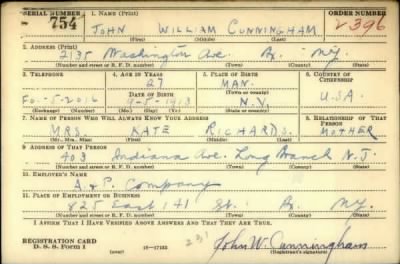 SERIAL NUMBER 1. NAME (Print) ORDER NUMBER
754 JOHN WILLIAM CUNNINGHAM 2396
(First) (Middle) (Last)
2. ADDRESS (Print)
2135 Washington Ave. Bx. N.Y.
(Number and street or R. F. D. number) (Town) (County) (State)
3. TELEPHONE 4. AGE IN YEARS 5. PLACE OF BIRTH 6. COUNTRY OF CITIZENSHIP
27 MAN.
DATE OF BIRTH (Town or county)
Fo.-5-2016 9-5-1913 N.Y. U.S.A.
(Exchange) (Number) (Mo.) (Day) (Yr.) (State or country)
7. NAME OF PERSON WHO WILL ALWAYS KNOW YOUR ADDRESS 8. RELATIONSHIP OF THAT PERSON
MRS. KATE RICHARDS. MOTHER
(Mr., Mrs., Miss) (First) (Middle) (Last)
9. ADDRESS OF THAT PERSON
403 Indiana Ave. Long Branch N.J.
(Number and street or R. F. D. number) (Town) (County) (State)
10. EMPLOYER'S NAME
A. & P. Company
11. PLACE OF EMPLOYMENT OR BUSINESS
825 East 141 St. Bx. N.Y.
(Number and street or R. F. D. number) (Town) (County) (State)
I AFFIRM THAT I HAVE VERIFIED ABOVE ANSWERS AND THAT THEY ARE TRUE.
REGISTRATION CARD
D. S. S. Form 1 (over) 16—17105 231 John W. Cunningham
(Registrant's signature)